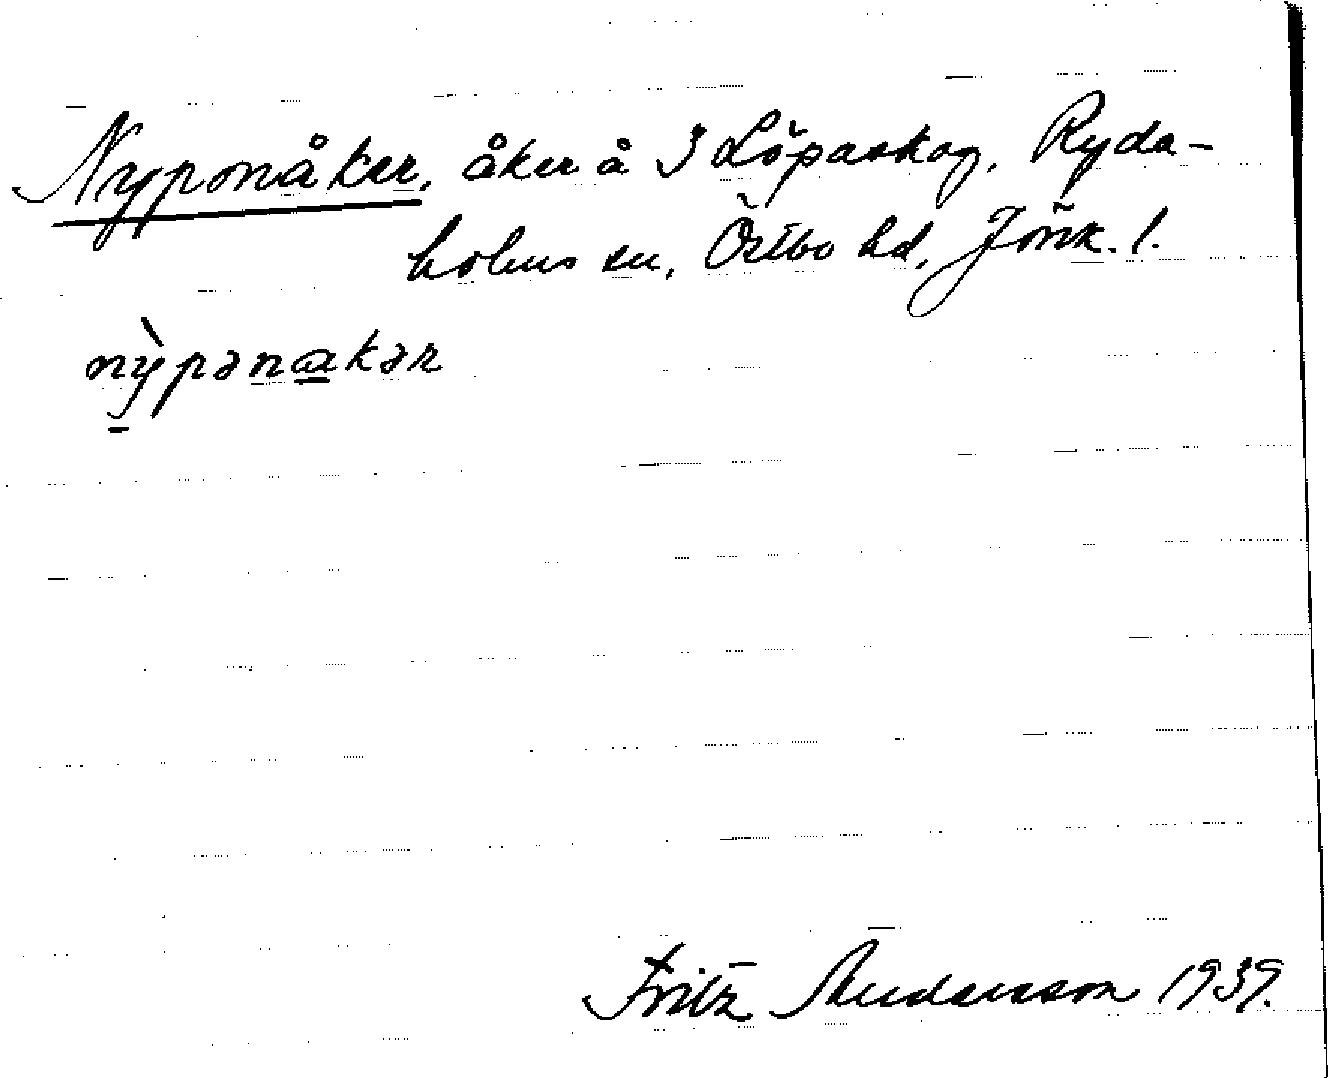 Nyponåker, åker å 3 Löpaskog, Ryda-
holms sn, Östbo hd, Jönk. l.
nỳpənakər
Fritz Andersson 1939.